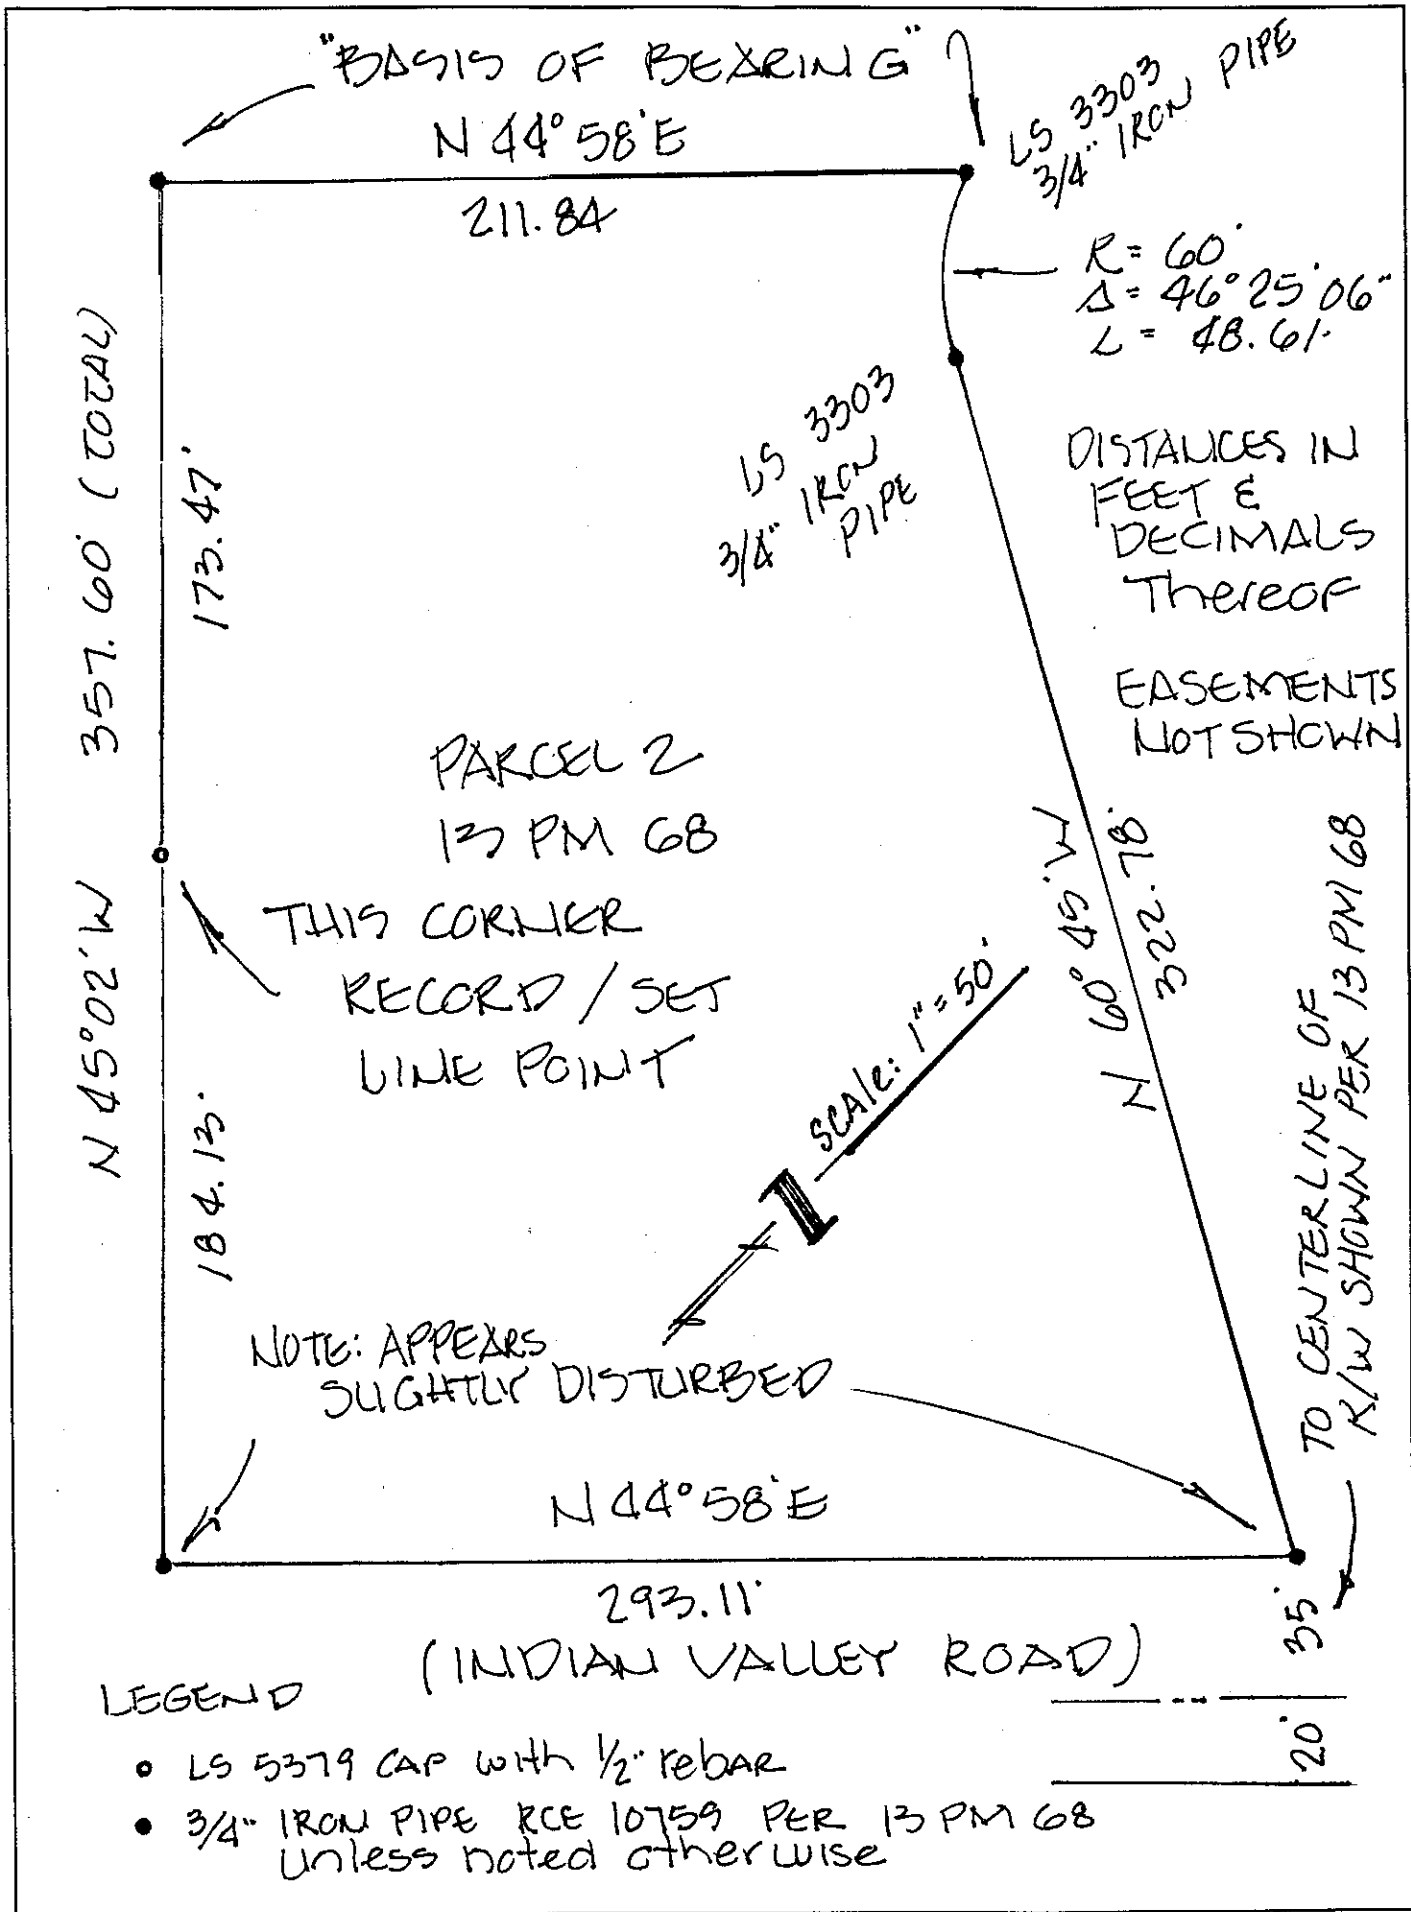 "BASIS OF BEARING"
N 44° 58' E
211.84
LS 3303
3/4" IRON PIPE
R = 60'
Δ = 46° 25' 06"
L = 48.61'
LS 3303
3/4" IRON
PIPE
DISTANCES IN
FEET &
DECIMALS
Thereof
EASEMENTS
NOT SHOWN
N 45° 02' W 357.60' (TOTAL)
173.47'
184.13'
PARCEL 2
13 PM 68
THIS CORNER
RECORD / SET
LINE POINT
N 60° 45' W
322.78'
SCALE: 1" = 50'
TO CENTERLINE OF
R/W SHOWN PER 13 PM 68
NOTE: APPEARS
SLIGHTLY DISTURBED
N 44° 58' E
293.11'
(INDIAN VALLEY ROAD)
35'
20'
LEGEND
LS 5379 CAP with 1/2" rebar
3/4" IRON PIPE RCE 10759 PER 13 PM 68
unless noted otherwise